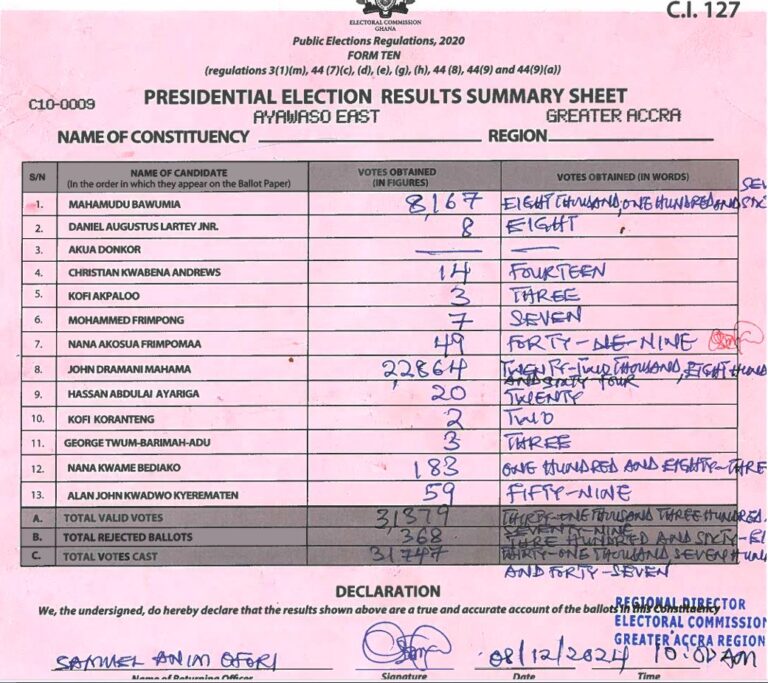 C.I. 127
ELECTORAL COMMISSION
GHANA
Public Elections Regulations, 2020
FORM TEN
(regulations 3(1)(m), 44 (7)(c), (d), (e), (g), (h), 44 (8), 44(9) and 44(9)(a))
C10-0009
PRESIDENTIAL ELECTION RESULTS SUMMARY SHEET
AYAWASO EAST GREATER ACCRA
NAME OF CONSTITUENCY REGION
S/N NAME OF CANDIDATE (In the order in which they appear on the Ballot Paper) VOTES OBTAINED (IN FIGURES) VOTES OBTAINED (IN WORDS)
1. MAHAMUDU BAWUMIA 8,167 EIGHT THOUSAND, ONE HUNDRED AND SIXT SEV
2. DANIEL AUGUSTUS LARTEY JNR. 8 EIGHT
3. AKUA DONKOR — —
4. CHRISTIAN KWABENA ANDREWS 14 FOURTEEN
5. KOFI AKPALOO 3 THREE
6. MOHAMMED FRIMPONG 7 SEVEN
7. NANA AKOSUA FRIMPOMAA 49 FORTY-NINE
8. JOHN DRAMANI MAHAMA 22,864 TWENTY-TWO THOUSAND, EIGHT HUND
AND SIXTY FOUR
9. HASSAN ABDULAI AYARIGA 20 TWENTY
10. KOFI KORANTENG 2 TWO
11. GEORGE TWUM-BARIMAH-ADU 3 THREE
12. NANA KWAME BEDIAKO 183 ONE HUNDRED AND EIGHTY-THRE
13. ALAN JOHN KWADWO KYEREMATEN 59 FIFTY-NINE
A. TOTAL VALID VOTES 31,379 THIRTY-ONE THOUSAND THREE HUNDRED
SEVENTY-NINE
B. TOTAL REJECTED BALLOTS 368 THREE HUNDRED AND SIXTY-EI
C. TOTAL VOTES CAST 31747 THIRTY-ONE THOUSAND SEVEN HUN
AND FORTY-SEVEN
DECLARATION
We, the undersigned, do hereby declare that the results shown above are a true and accurate account of the ballots in this Constituency
REGIONAL DIRECTOR
ELECTORAL COMMISSION
GREATER ACCRA REGION
SAMUEL ANIM OFORI 08/12/2024 10:01 AM
Name of Returning Officer Signature Date Time